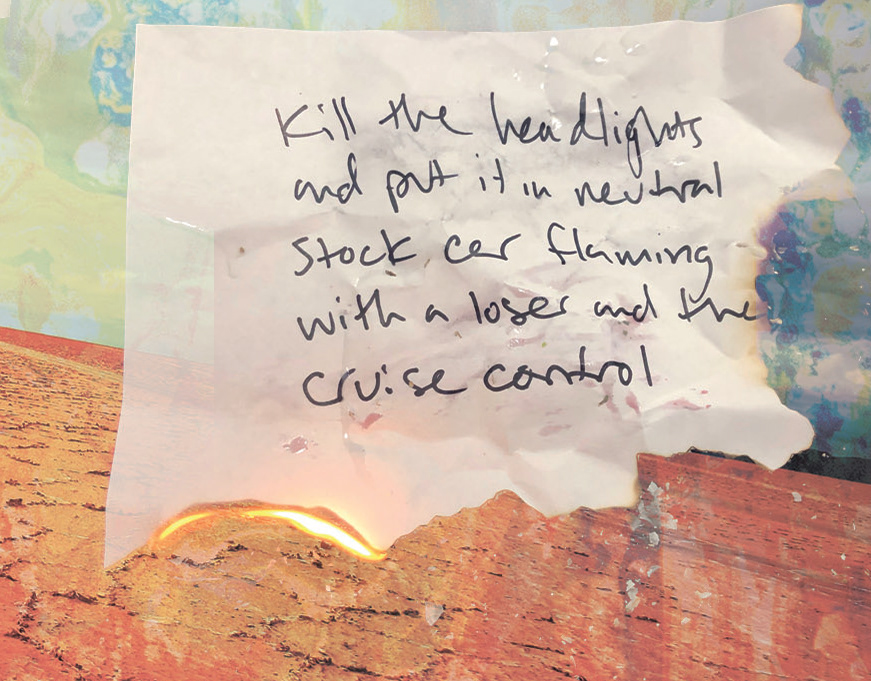 Kill the headlights
and put it in neutral
stock car flaming
with a loser and the
cruise control